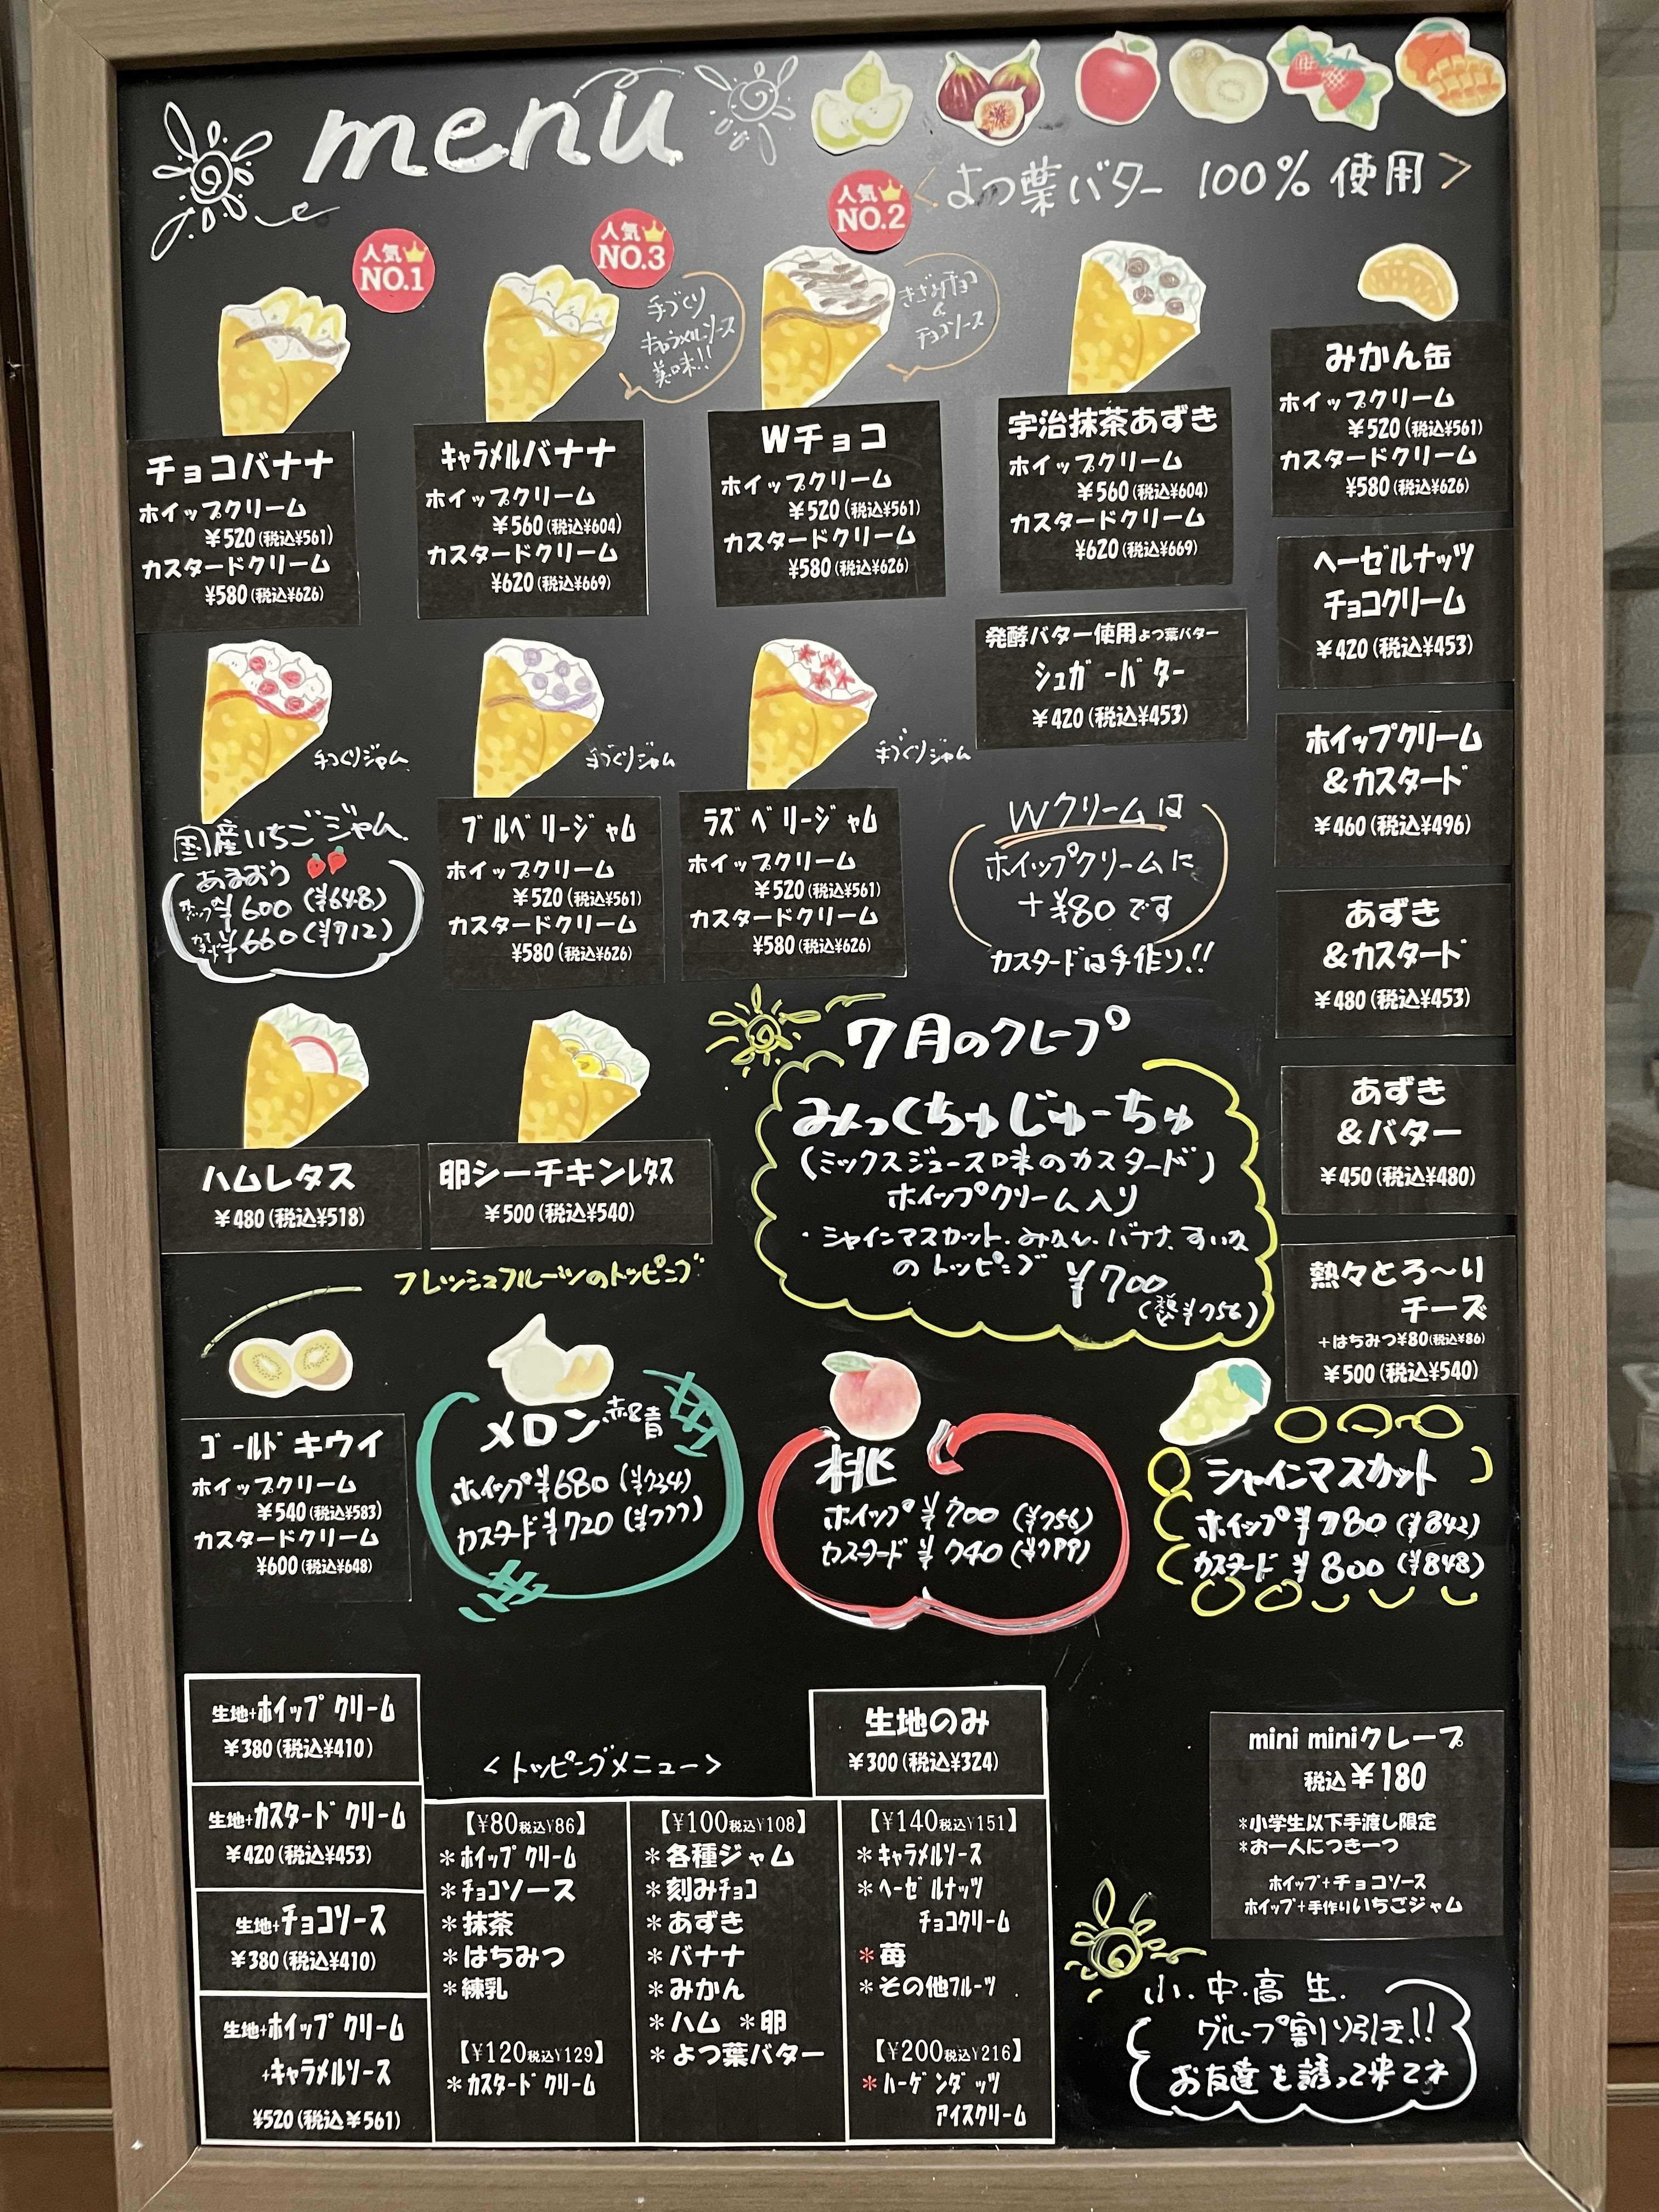 menu
<よつ葉バター 100% 使用>
人気
NO.1
人気
NO.3
人気
NO.2
手づくり
キャラメルソース
美味!!
きざみチョコ
&
チョコソース
チョコバナナ
ホイップクリーム
¥520(税込¥561)
カスタードクリーム
¥580(税込¥626)
キャラメルバナナ
ホイップクリーム
¥560(税込¥604)
カスタードクリーム
¥620(税込¥669)
Wチョコ
ホイップクリーム
¥520(税込¥561)
カスタードクリーム
¥580(税込¥626)
宇治抹茶あずき
ホイップクリーム
¥560(税込¥604)
カスタードクリーム
¥620(税込¥669)
みかん缶
ホイップクリーム
¥520(税込¥561)
カスタードクリーム
¥580(税込¥626)
ヘーゼルナッツ
チョコクリーム
¥420(税込¥453)
ホイップクリーム
&カスタード
¥460(税込¥496)
あずき
&カスタード
¥480(税込¥453)
あずき
&バター
¥450(税込¥480)
熱々とろ〜り
チーズ
+はちみつ¥80(税込¥86)
¥500(税込¥540)
発酵バター使用よつ葉バター
シュガーバター
¥420(税込¥453)
手づくりジャム
国産いちごジャム
あまおう
ホイップ¥600(¥648)
カスタード¥660(¥712)
手づくりジャム
ブルベリージャム
ホイップクリーム
¥520(税込¥561)
カスタードクリーム
¥580(税込¥626)
手づくりジャム
ラズベリージャム
ホイップクリーム
¥520(税込¥561)
カスタードクリーム
¥580(税込¥626)
Wクリームは
ホイップクリームに
+¥80です
カスタードは手作り!!
ハムレタス
¥480(税込¥518)
卵シーチキンレタス
¥500(税込¥540)
7月のクレープ
みっくちゅじゅーちゅ
(ミックスジュース味のカスタード)
ホイップクリーム入り
・シャインマスカット、みかん、バナナ、すいか
のトッピング
¥700
(税込¥756)
フレッシュフルーツのトッピング
ゴールドキウイ
ホイップクリーム
¥540(税込¥583)
カスタードクリーム
¥600(税込¥648)
メロン赤&青
ホイップ¥680(¥734)
カスタード¥720(¥777)
桃
ホイップ¥700(¥756)
カスタード¥740(¥799)
シャインマスカット
ホイップ¥780(¥842)
カスタード¥800(¥848)
生地+ホイップクリーム
¥380(税込¥410)
生地+カスタードクリーム
¥420(税込¥453)
生地+チョコソース
¥380(税込¥410)
生地+ホイップクリーム
+キャラメルソース
¥520(税込¥561)
<トッピングメニュー>
生地のみ
¥300(税込¥324)
【¥80税込¥86】
*ホイップクリーム
*チョコソース
*抹茶
*はちみつ
*練乳
【¥120税込¥129】
*カスタードクリーム
【¥100税込¥108】
*各種ジャム
*刻みチョコ
*あずき
*バナナ
*みかん
*ハム *卵
*よつ葉バター
【¥140税込¥151】
*キャラメルソース
*ヘーゼルナッツ
チョコクリーム
*苺
*その他フルーツ
【¥200税込¥216】
*ハーゲンダッツ
アイスクリーム
mini miniクレープ
税込¥180
*小学生以下手渡し限定
*お一人につき一つ
ホイップ+チョコソース
ホイップ+手作りいちごジャム
小.中.高生.
グループ割り引き!!
お友達を誘って来てネ